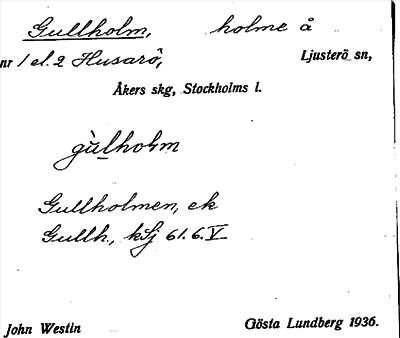 Gullholm, holme å
nr 1 el. 2 Husarö, Ljusterö sn,
Åkers skg, Stockholms l.
gùlholm
Gullholmen, ek
Gullh., kSj 61.6.V
John Westin Gösta Lundberg 1936.